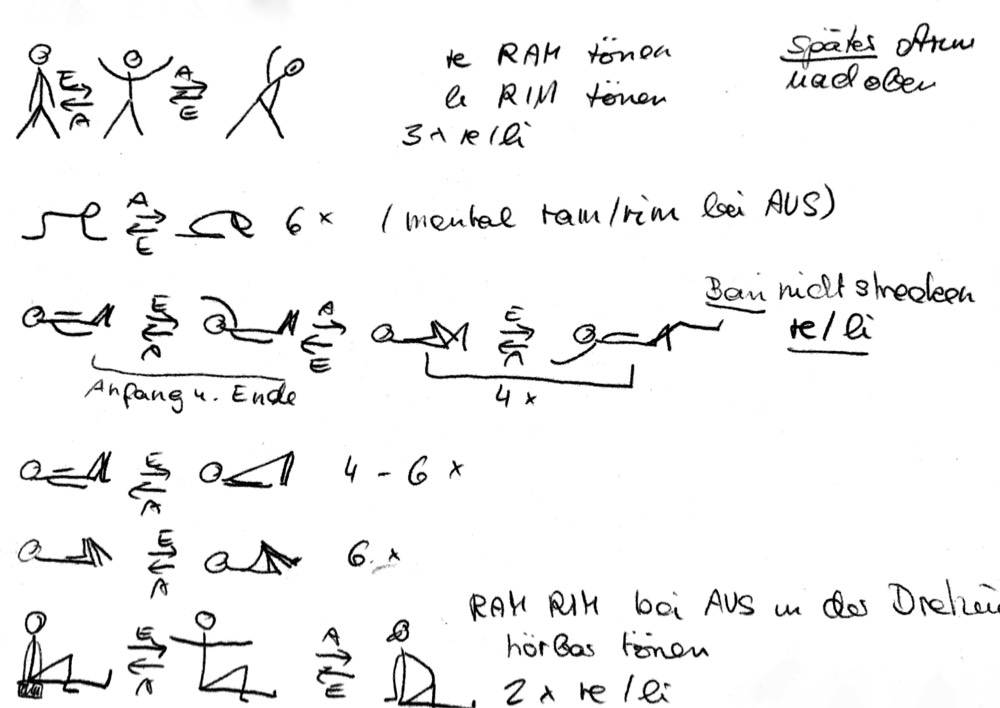 re RAM tönen
li RIM tönen
3x re/li
spätes Arm
nach oben
E A
A E
A
E
6x (mental ram/rim bei AUS)
E A E
A E A
Bein nicht strecken
re/li
Anfang u. Ende
4x
E
A
4 - 6 x
E
A
6.x
RAM RIM bei AUS in das Drehen
hörbar tönen
2x re/li
E A
A E